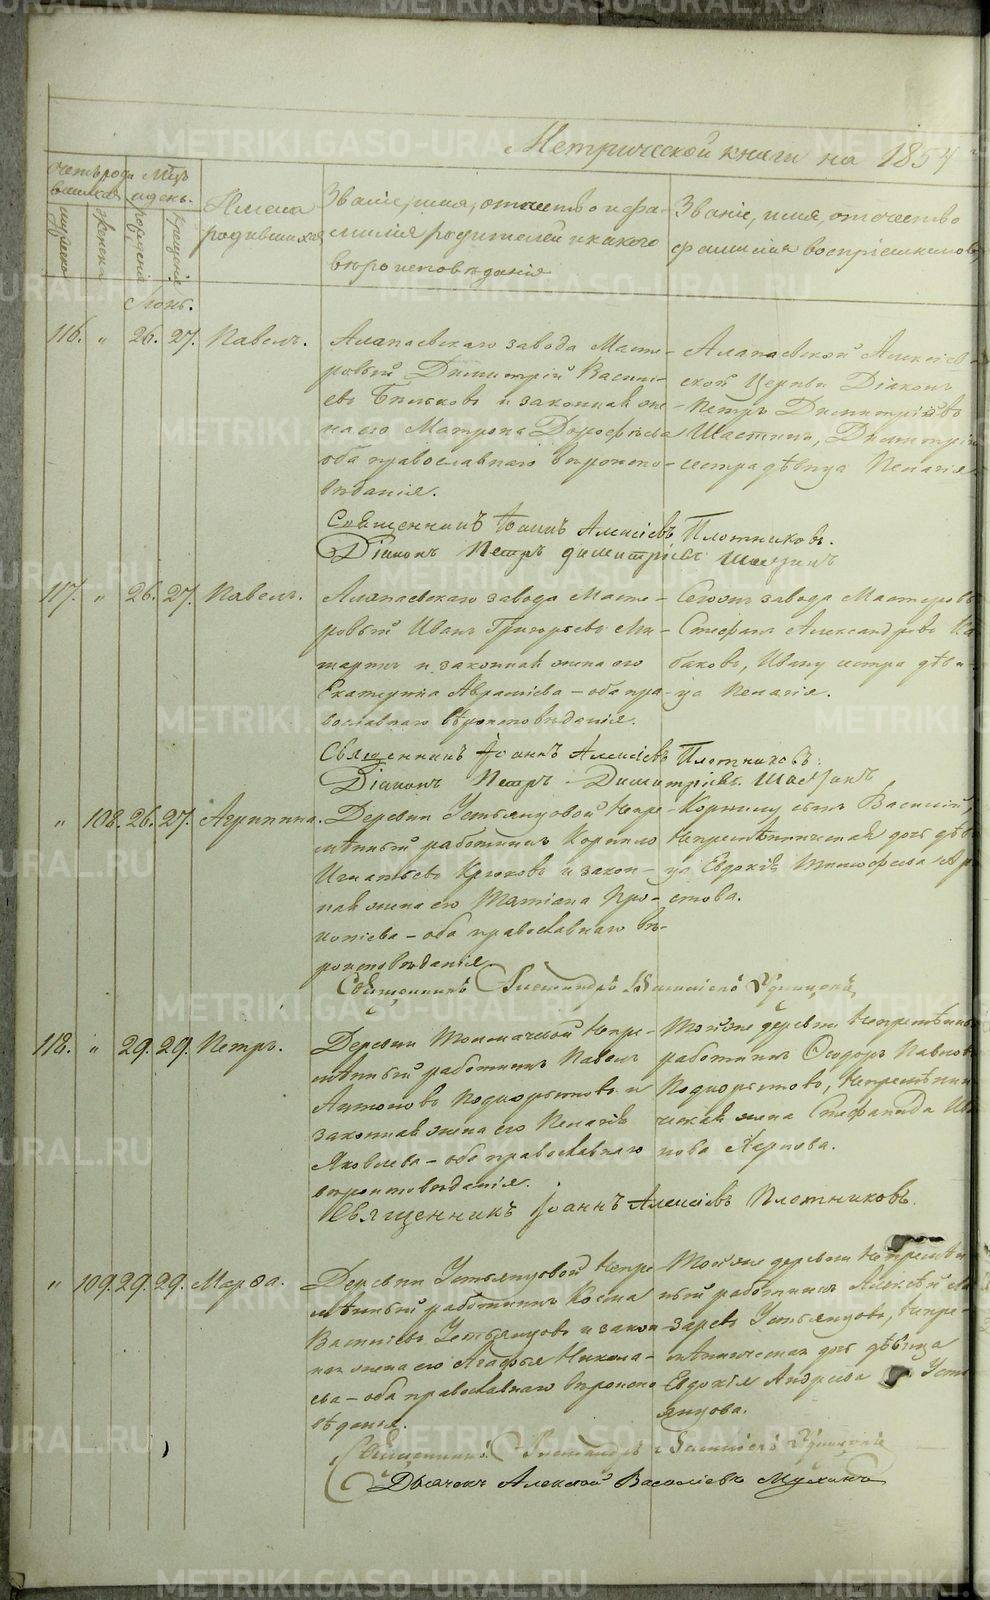 Метрической книги на 1854
Счетъ роди вшихся
Мцъ и день.
мужеска
женска
рожденiя
крещенiя
Имена родившихся
Званiе, имя, отчество и фа-
милiя родителей и какого
вѣроисповѣданiя
Званiе, имя, отчество
фамилiя воспрiемниковъ
Iюнь.
116. " 26. 27. Павелъ.
Алапаевскаго завода Масте-
ровый Димитрiй Василь-
евъ и законная же-
на его Матрона Дорофѣева
оба православнаго вѣроиспо-
вѣданiя.
Алапаевской Алексiев-
ской Церкви Дiаконъ
Петръ Димитрiевъ
Шастинъ, Димитрiю
сестра дѣвица Пелагiя
Священникъ Iоаннъ Алексiевъ Плотниковъ.
Дiаконъ Петръ Димитрiевъ Шастинъ
117. " 26. 27. Павелъ.
Алапаевскаго завода Масте-
ровый Иванъ Григорьевъ
и законная жена его
Екатерина Аврамiева – оба пра-
вославнаго вѣроисповѣданiя.
Сегожъ завода Мастеровъ
Стефанъ Александровъ Ка
баковъ, Ивану сестра дѣви-
ца Пелагiя.
Священникъ Iоаннъ Алексiевъ Плотниковъ.
Дiаконъ Петръ Димитрiевъ Шастинъ
" 108. 26. 27. Агрипина.
Деревни Устьянцовой Непре-
мѣнный работникъ Корнило
Игнатьевъ Крюковъ и закон-
ная жена его Татiана Про-
копiева – оба православнаго вѣ-
роисповѣданiя.
Корнилу сынъ Василiй,
Непремѣнническая дочь дѣв
ца Евдокiя
стова.
Священникъ Александръ Удинцевъ
118. " 29. 29. Петръ.
Деревни Толмачевой Непре-
мѣнный работникъ Павелъ
Антоновъ Подкорытовъ и
законная жена его Пелагiя
Яковлева – оба православнаго
вѣроисповѣданiя.
Тойже деревни Непремѣнный
работникъ Ѳеодоръ Павловъ
Подкорытовъ, Непремѣнни-
ческая жена Стефанида Ива
нова Карпова.
Священникъ Iоаннъ Алексiевъ Плотниковъ.
" 109. 29. 29. Марѳа.
Деревни Устьянцовой Непре
мѣнный работникъ Косма
Василiевъ Устьянцовъ и закон
ная жена его Агафья Никола-
ева – оба православнаго вѣроиспо
вѣданiя.
Тойже деревни Непремѣн
ный работникъ Алексѣй Ла
заревъ Устьянцовъ, Непре-
мѣнническая дочь дѣвица
Евдокiя Андреева Усть
янцова.
Священникъ Александръ Удинцевъ
Дьячекъ Алексей Василiевъ Мухинъ
METRIKI.GASO-URAL.RU